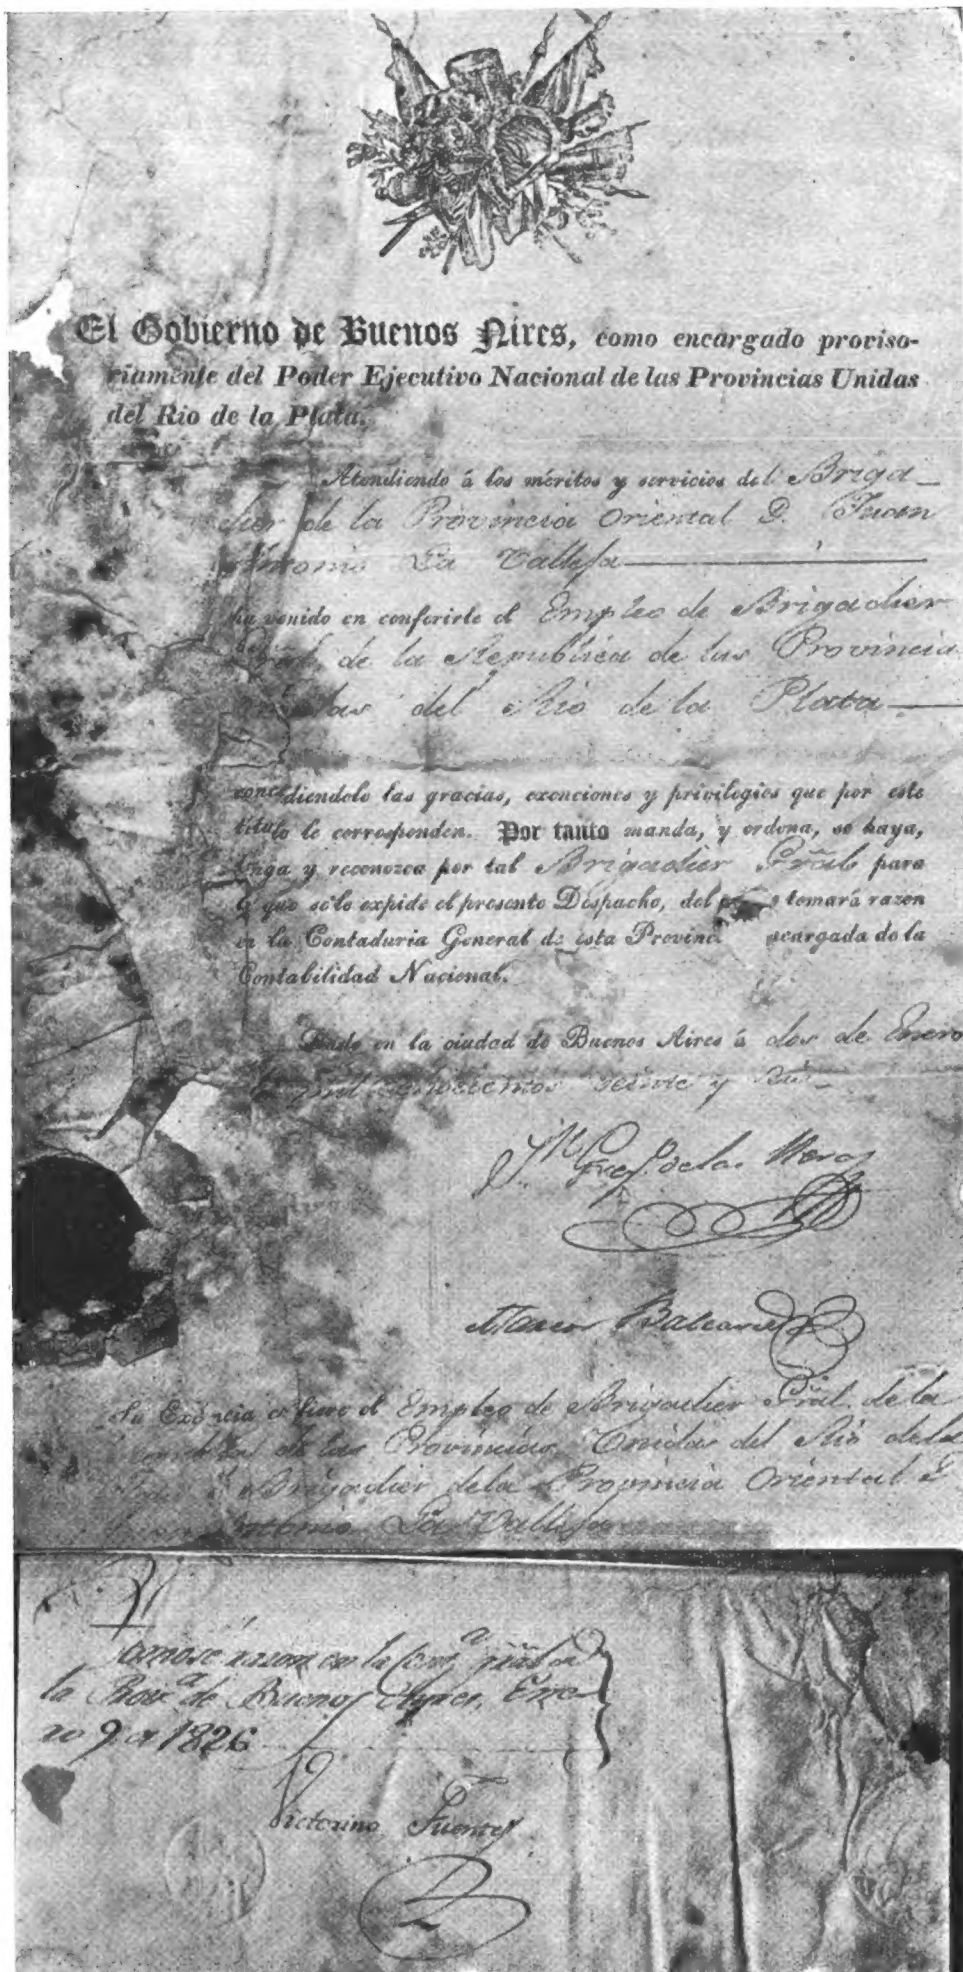 El Gobierno de Buenos Aires, como encargado proviso-
riamente del Poder Ejecutivo Nacional de las Provincias Unidas
del Rio de la Plata.
Atendiendo á los méritos y servicios del Briga_
dier de la Provincia Oriental D. Juan
Antonio La Valleja
ha venido en conferirle el Empleo de Brigadier
Grãl. de la Republica de las Provincia
del Rio de la Plata
concediendole las gracias, exenciones y privilegios que por este
titulo le corresponden. Por tanto manda, y ordena, se haya,
tenga y reconozca por tal Brigadier Grãl. para
lo que se le expide el presente Despacho, del tomará razon
en la Contaduria General de esta Provinci ncargada de la
Contabilidad Nacional.
Dado en la ciudad de Buenos Aires á dos de Enero
de mil ochocientos veinte y seis
Jn. Greg. de las Heras
Marcos Balcarce
Su Exc ncia confiere el Empleo de Brigadier Grãl. de la
de las Provincias Unidas del Rio dela
Brigadier dela Provincia Oriental D
Antonio La Valleja
Tomose razon en la Cont.a grãl de
la Prov.a de Buenos Ayres, Ene-
ro 9 de 1826
Victorino Fuentes